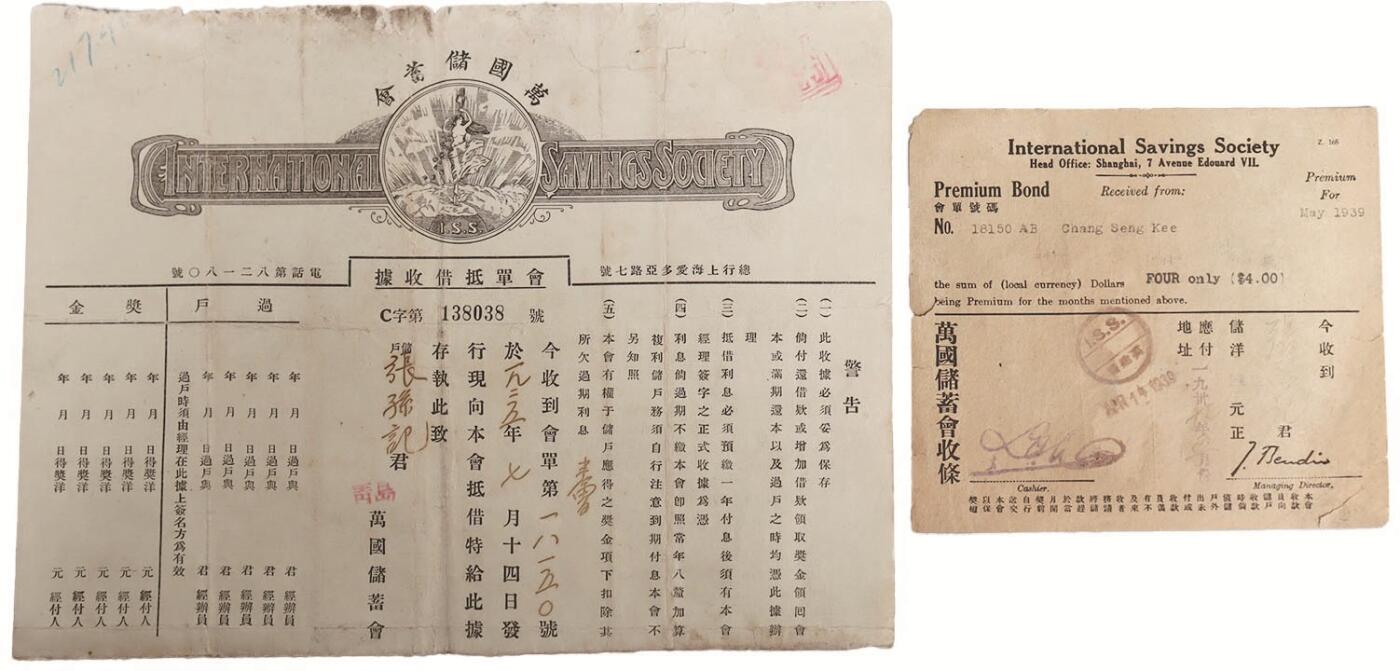 萬國儲蓄會
INTERNATIONAL SAVINGS SOCIETY
I.S.S.
總行上海愛多亞路七號
會單抵借收據
電話第八二一八〇號
警告
(一)此收據必須妥爲保存
(二)倘付還借欵或增加借欵領取獎金領回會
本或滿期還本以及過戶之時均憑此據辦
理
(三)抵借利息必須預繳一年付息後須有本會
經理簽字之正式收據爲憑
(四)利息倘過期不繳本會卽照當年八釐加算
複利儲戶務須自行注意到期付息本會不
另知照
(五)本會有權于儲戶應得之獎金項下扣除其
所欠過期利息
C字第 138038 號
今收到會單第一八一五〇號
於一九三五年七月十四日發
行現向本會抵借特給此據
存執此致
儲戶張孫記君
萬國儲蓄會
青島
過戶
年月日過戶與君經辦員
年月日過戶與君經辦員
年月日過戶與君經辦員
年月日過戶與君經辦員
年月日過戶與君經辦員
過戶時須由經理在此據上簽名方爲有效
獎金
年月日得獎洋元經付人
年月日得獎洋元經付人
年月日得獎洋元經付人
年月日得獎洋元經付人
年月日得獎洋元經付人
International Savings Society
Z. 168
Head Office: Shanghai, 7 Avenue Edouard VII.
Premium Bond
Received from:
Premium
For
會單號碼
May 1939
No. 18150 AB Chang Seng Kee
the sum of (local currency) Dollars FOUR only ($4.00)
being Premium for the months mentioned above.
今收到
君
儲洋元正
應付一九卅年月份
地址
萬國儲蓄會收條
I.S.S.
APR 14 1939
J. Bendin
Cashier.
Managing Director.